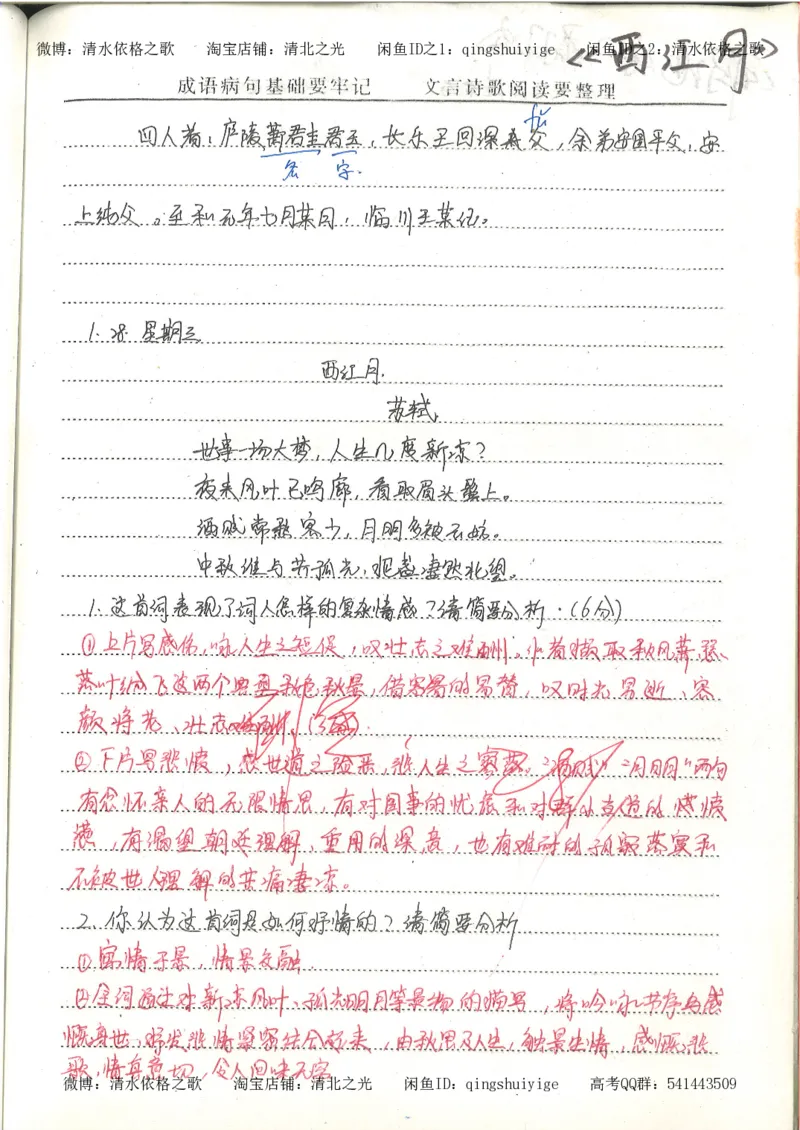 微博：清水依格之歌 淘宝店铺：清北之光 闲鱼ID之1：qingshuiyige 闲鱼ID之2：清水依格之歌
《西江月》
成语病句基础要牢记 文言诗歌阅读要整理
四人者：庐陵萧君圭君玉，长乐王回深甫父，余弟安国平父，安
名 字.
上纯父。至和元年七月某日，临川王某记。
1.28. 星期三
西江月.
苏轼
世事一场大梦，人生几度新凉？
夜来风叶已鸣廊，看取眉头鬓上。
酒贱常愁客少，月明多被云妨。
中秋谁与共孤光，把盏凄然北望。
1.这首词表现了词人怎样的复杂情感？请简要分析.（6分）
①上片写感伤，咏人生之短促，叹壮志之难酬。作者撷取秋风萧瑟、
落叶纷飞这两个典型秋色秋景，借容易的易替，叹时光易逝、容
颜将老、壮志
②下片写悲愤，感世道之险恶，悲人生之寂寥。"酒贱""月明"两句
有念怀亲人的无限情思，有对国事的忧虑和对群小当道的愤
懑，有渴望朝廷理解，重用的深意，也有难耐的孤寂落寞和
不被世人理解的苦痛凄凉。
2.你认为这首词是如何抒情的？请简要分析
①寓情于景，情景交融
②全词通过对新凉风叶、孤光明月等景物的描写，将吟咏节序与感
慨身世、抒发悲情紧密结合起来，由秋思及人生，触景生情，感慨悲
歌，情真意切，令人回味无穷
微博：清水依格之歌 淘宝店铺：清北之光 闲鱼ID：qingshuiyige 高考QQ群：541443509